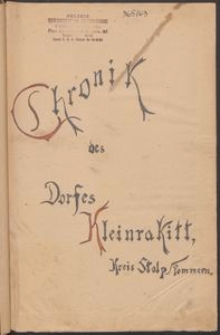 Chronik
des
Dorfes
Kleinrakitt,
Kreis Stolp, Pommern,